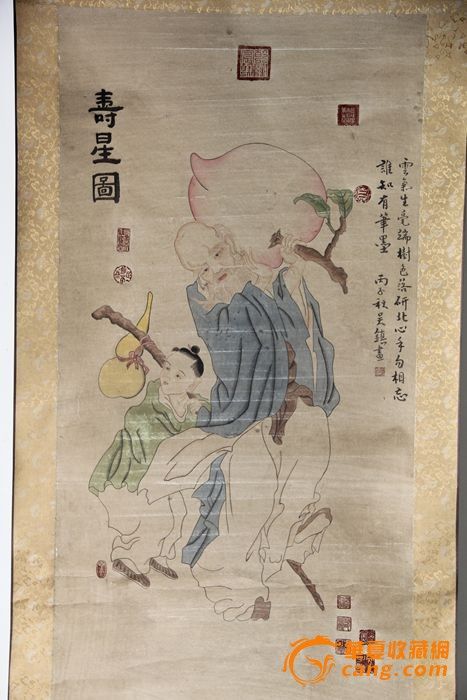 壽星圖
雲氣生毫端樹色落研北心手勻相忘
誰知有筆墨
丙子秋吳鎮畫
華夏收藏網
cang.com